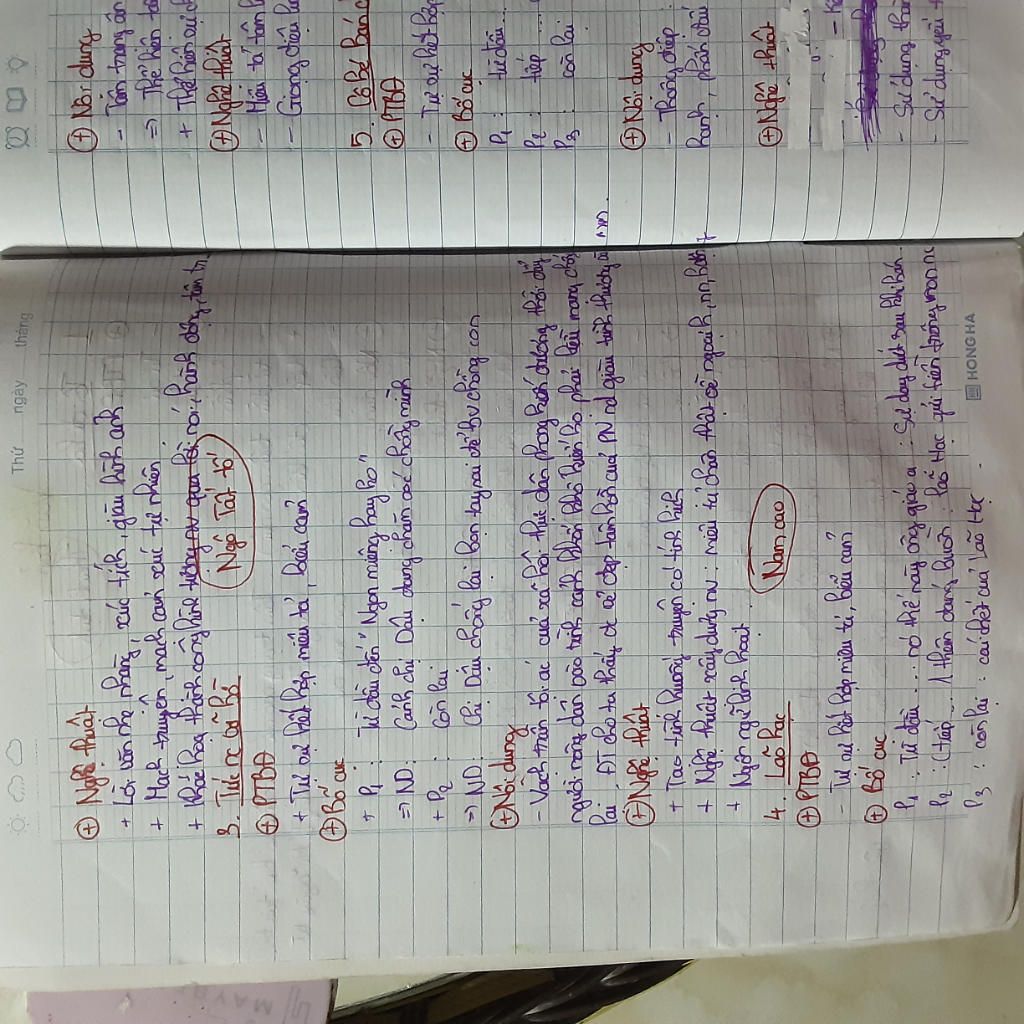 Thứ ngày tháng
⊕ Nghệ thuật
+ Lời văn nhẹ nhàng, xúc tích, giàu hình ảnh
+ Mạch truyện, mạch cảm xúc tự nhiên
+ Khắc họa thành công hình tượng nv qua lời nói, hành động, tâm tr
3. Tức nước vỡ bờ
Ngô Tất Tố
⊕ PTBĐ
+ Tự sự kết hợp miêu tả, biểu cảm
⊕ Bố cục
+ P1 : Từ đầu đến "Ngon miệng hay ko"
=> ND : Cảnh chị Dậu đang chăm sóc chồng mình
+ P2 : Còn lại
=> ND : Chị Dậu chống lại bọn tay sai để bv chồng con
⊕ Nội dung
- Vạch trần tội ác của xã hội thực dân phong kiến đương thời đẩy
người nông dân vào tình cảnh khốn khổ khiến họ phải liều mạng chống
lại. ĐT cho ta thấy đc vẻ đẹp tâm hồn của PN nd giàu tình thương
⊕ Nghệ thuật
+ Tạo tình huống truyện có tính kịch
+ Nghệ thuật xây dựng nv : miêu tả chân thật về ngoại h, nn, hành
+ Ngôn ngữ linh hoạt
4. Lão hạc
Nam cao
⊕ PTBĐ
- Tự sự kết hợp miêu tả, biểu cảm
⊕ Bố cục
P1 : Từ đầu ... nó thế này ông giáo ạ : Sự day dứt sau khi bán
P2 : (tiếp ... 1 thêm đáng buồn : Lão Hạc gửi tiền trông
P3 : còn lại : cái chết của Lão Hạc
HONG HA
⊕ Nội dung
- Tâm trạng
=> Thể hiện
+ Thể hiện
⊕ Nghệ thuật
- Miêu tả tâm
- Giọng điệu
5. Cô bé bán
⊕ PTBĐ
- Tự sự kết hợp
⊕ Bố cục
P1 : từ đầu...
P2 : tiếp ...
P3 : còn lại
⊕ Nội dung
- Thông điệp
hạnh, phấn đấu
⊕ Nghệ thuật
- Sử dụng
- Sử dụng yếu t